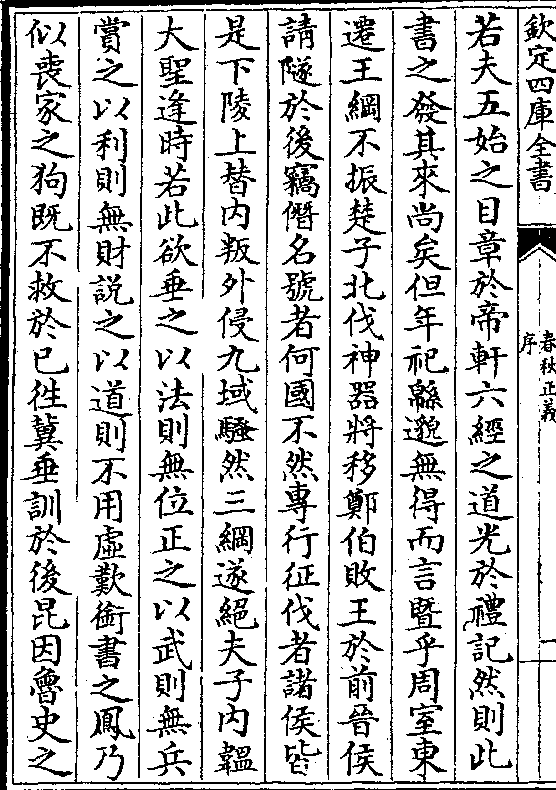 欽定四庫全書
春秋正義
序
一
若夫五始之目章於帝軒六經之道光於禮記然則此
書之發其來尚矣但年祀緜邈無得而言暨乎周室東
遷王綱不振楚子北伐神器將移鄭伯敗王於前晉侯
請隧於後竊僭名號者何國不然專行征伐者諸侯皆
是下陵上替内叛外侵九域騷然三綱遂絕夫子内韞
大聖逢時若此欲垂之以法則無位正之以武則無兵
賞之以利則無財説之以道則不用虛歎銜書之鳳乃
似喪家之狗既不救於已徃冀垂訓於後昆因魯史之